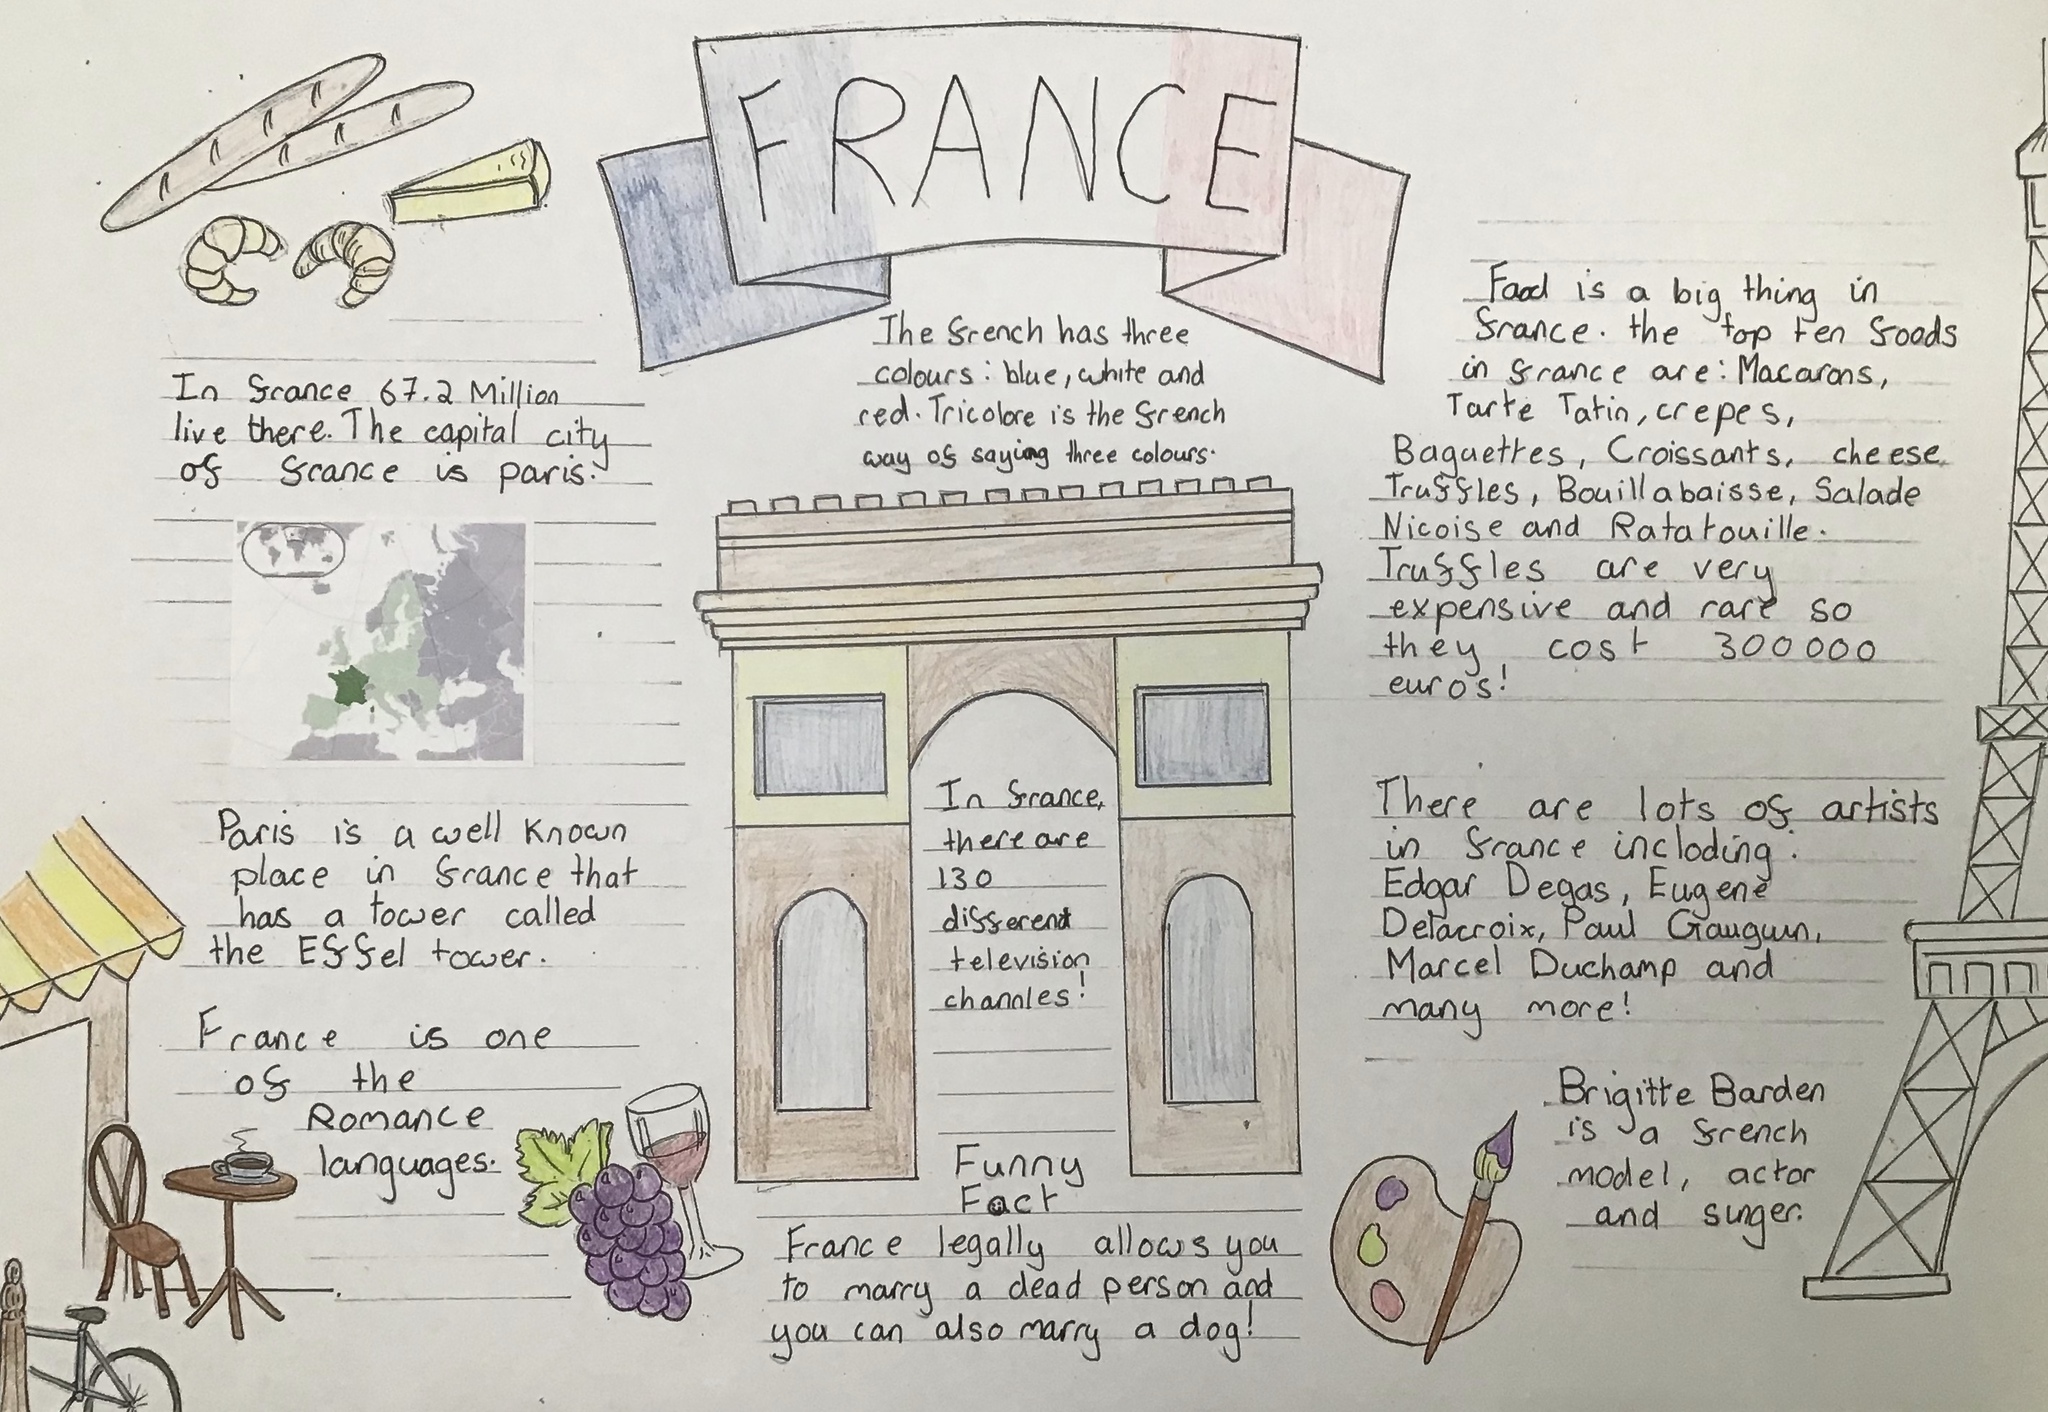 FRANCE
The french has three
colours: blue, white and
red. Tricolore is the french
way of saying three colours.
In france 67.2 Million
live there. The capital city
of france is paris.
Paris is a well known
place in france that
has a tower called
the Effel tower.
France is one
of the
Romance
languages.
In france,
there are
130
different
television
channles!
Funny
Fact
France legally allows you
to marry a dead person and
you can also marry a dog!
Food is a big thing in
france. the top ten foods
in france are: Macarons,
Tarte Tatin, crepes,
Baguettes, Croissants, cheese
Truffles, Bouillabaisse, Salade
Nicoise and Ratatouille.
Truffles are very
expensive and rare so
they cost 300000
euro's!
There are lots of artists
in france incloding:
Edgar Degas, Eugene
Delacroix, Paul Gauguin,
Marcel Duchamp and
many more!
Brigitte Barden
is a french
model, actor
and singer.